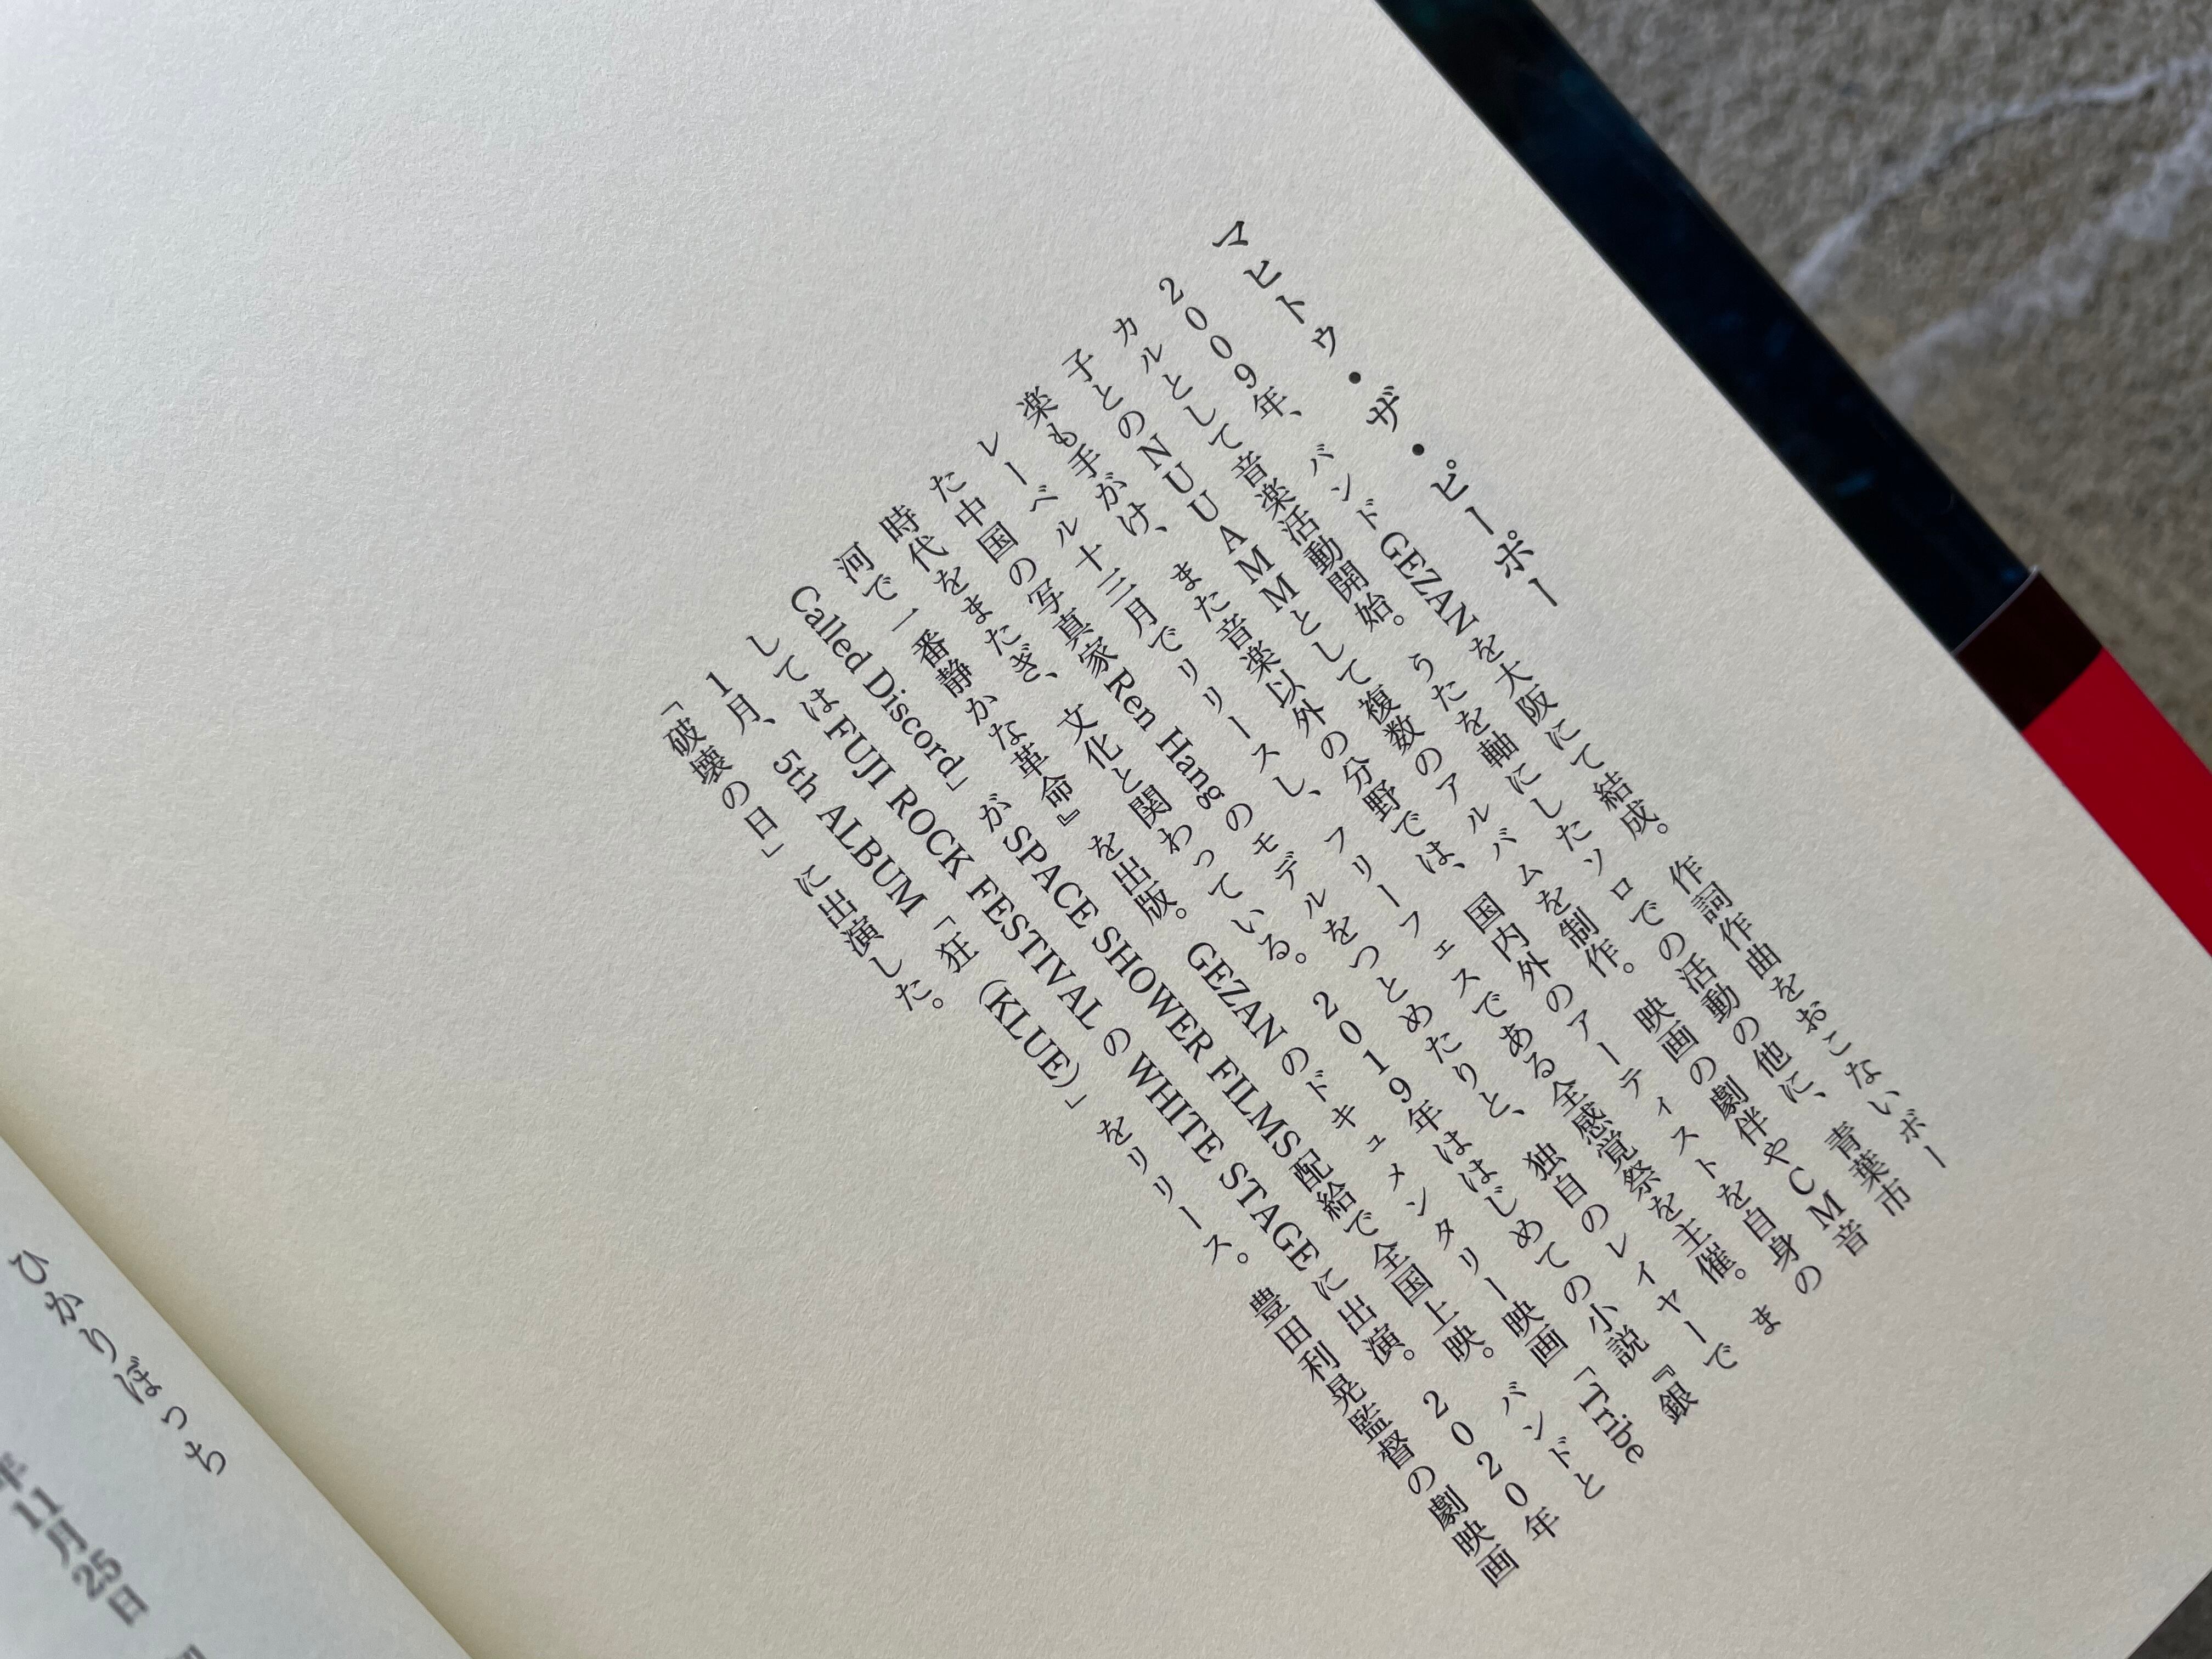 マヒトゥ・ザ・ピーポー
2009年、バンドGEZANを大阪にて結成。作詞作曲をおこないボー
カルとして音楽活動開始。うたを軸にしたソロでの活動の他に、青葉市
子とのNUUAMMとして複数のアルバムを制作。映画の劇伴やCM音
楽も手がけ、また音楽以外の分野では、国内外のアーティストを自身の
レーベル十三月でリリースし、フリーフェスである全感覚祭を主催。ま
た中国の写真家Ren Hangのモデルをつとめたりと、独自のレイヤーで
時代をまたぎ、文化と関わっている。2019年ははじめての小説『銀
河で一番静かな革命』を出版。GEZANのドキュメンタリー映画「Tribe
Called Discord」がSPACE SHOWER FILMS配給で全国上映。バンドと
してはFUJI ROCK FESTIVALのWHITE STAGEに出演。2020年
1月、5th ALBUM「狂（KLUE）」をリリース。豊田利晃監督の劇映画
「破壊の日」に出演した。
ひかりぼっち
年11月25日